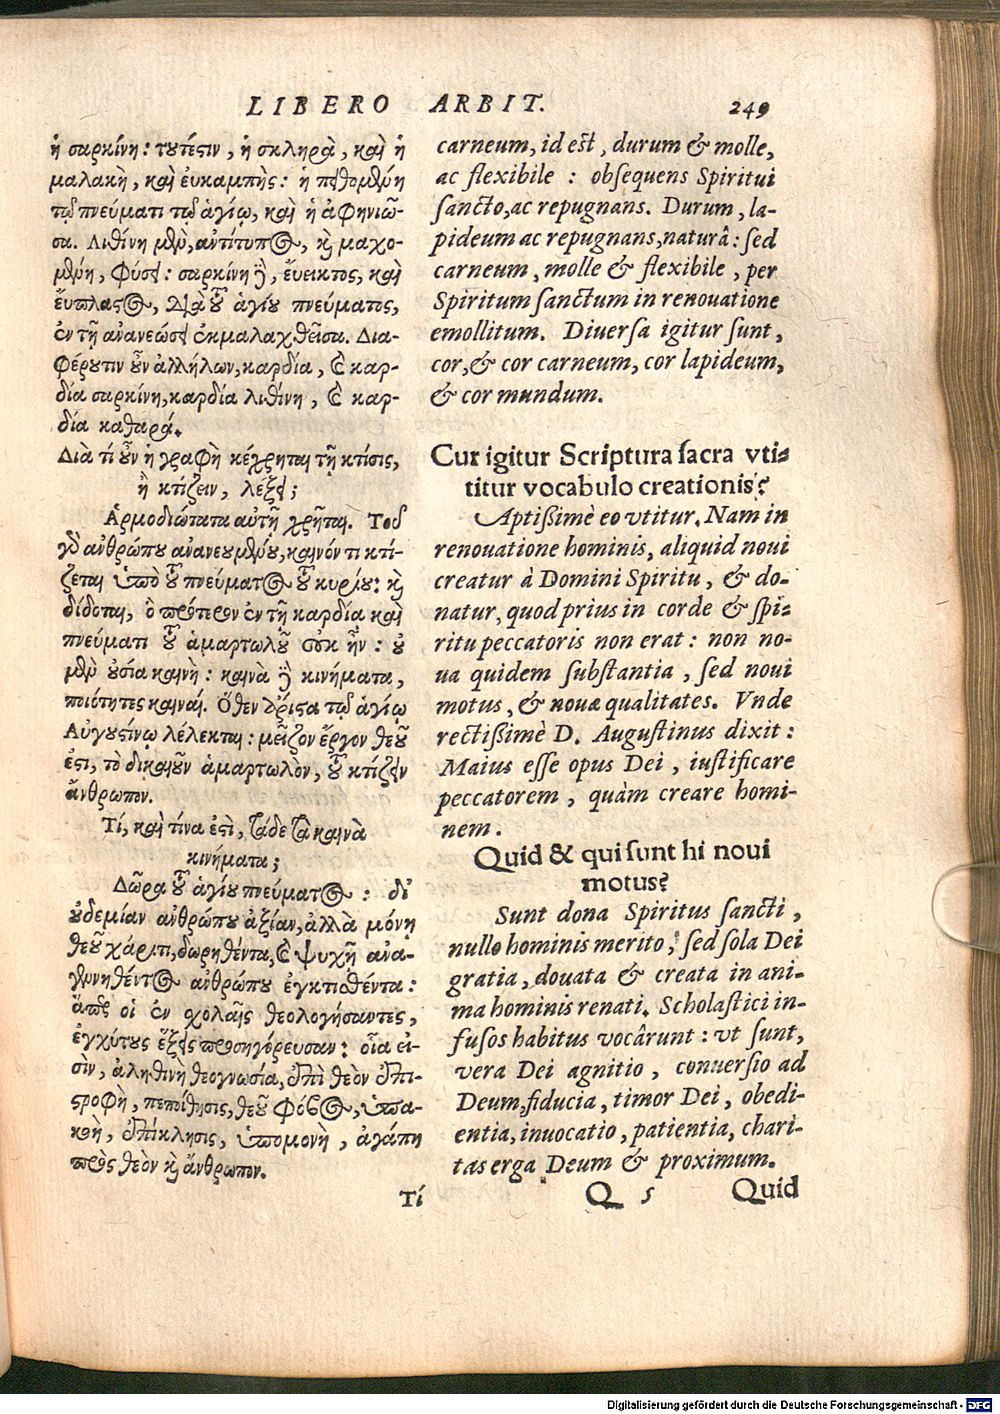 LIBERO ARBIT. 249
ἡ σαρκίνη: τουτέστιν, ἡ σκληρὰ, καὶ ἡ
μαλακὴ, καὶ εὐκαμπής: ἡ πειθομένη
τῷ πνεύματι τῷ ἁγίῳ, καὶ ἡ ἀφηνιῶ-
σα. Λιθίνη μὲν, ἀντίτυπος, καὶ μαχο-
μένη, φύσει: σαρκίνη δὲ, ἔυεικτος, καὶ
ἔυπλαστος, διὰ τοῦ ἁγίου πνεύματος,
ἐν τῇ ἀνανεώσει ἐκμαλαχθεῖσα. Δια-
φέρουσιν οὖν ἀλλήλων, καρδία, καὶ καρ-
δία σαρκίνη, καρδία λιθίνη, καὶ καρ-
δία καθαρά.
Διὰ τί οὖν ἡ γραφὴ κέχρηται τῇ κτίσις,
ἢ κτίζειν, λέξει;
Ἁρμοδιώτατα αὐτῇ χρῆται. Τοῦ
γὰρ ἀνθρώπου ἀνανευμένου, καινόν τι κτί-
ζεται ὑπὸ τοῦ πνεύματος τοῦ κυρίου: καὶ
δίδοται, ὃ πρότερον ἐν τῇ καρδία καὶ
πνεύματι τοῦ ἁμαρτωλοῦ οὐκ ἦν: οὐ
μὲν οὐσία καινὴ: καινὰ δὲ κινήματα,
ποιότητες καιναί. Ὅθεν ἄριστα τῷ ἁγίῳ
Αὐγουστίνῳ λέλεκται: μεῖζον ἔργον θεοῦ
ἐστι, τὸ δικαιοῦν ἁμαρτωλὸν, τοῦ κτίζειν
ἄνθρωπον.
Τί, καὶ τίνα ἐστὶ, τάδε τὰ καινὰ
κινήματα;
Δῶρα τοῦ ἁγίου πνεύματος: δι'
οὐδεμίαν ἀνθρώπου ἀξίαν, ἀλλὰ μόνῃ
θεοῦ χάριτι, δωρηθέντα, καὶ ψυχῇ ἀνα-
γεννηθέντος ἀνθρώπου ἐγκτισθέντα:
ἅπερ οἱ ἐν σχολαῖς θεολογήσαντες,
ἐγχύτους ἕξεις προσηγόρευσαν: οἷα εἰ-
σὶν, ἀληθινὴ θεογνωσία, ἐπὶ θεὸν ἐπι-
στροφὴ, πεποίθησις, θεοῦ φόβος, ὑπα-
κοὴ, ἐπίκλησις, ὑπομονὴ, ἀγάπη
πρὸς θεὸν καὶ ἄνθρωπον.
Τί
carneum, id est, durum & molle,
ac flexibile : obsequens Spiritui
sancto, ac repugnans. Durum, la-
pideum ac repugnans, naturâ: sed
carneum, molle & flexibile, per
Spiritum sanctum in renouatione
emollitum. Diuersa igitur sunt,
cor, & cor carneum, cor lapideum,
& cor mundum.
Cur igitur Scriptura sacra vti-
titur vocabulo creationis?
Aptißimè eo vtitur. Nam in
renouatione hominis, aliquid noui
creatur à Domini Spiritu, & do-
natur, quod prius in corde & spi-
ritu peccatoris non erat: non no-
ua quidem substantia, sed noui
motus, & nouæ qualitates. Vnde
rectißimè D. Augustinus dixit:
Maius esse opus Dei, iustificare
peccatorem, quàm creare homi-
nem.
Quid & qui sunt hi noui
motus?
Sunt dona Spiritus sancti,
nullo hominis merito, sed sola Dei
gratia, douata & creata in ani-
ma hominis renati. Scholastici in-
fusos habitus vocârunt: vt sunt,
vera Dei agnitio, conuersio ad
Deum, fiducia, timor Dei, obedi-
entia, inuocatio, patientia, chari-
tas erga Deum & proximum.
Q 5 Quid
Digitalisierung gefördert durch die Deutsche Forschungsgemeinschaft - DFG